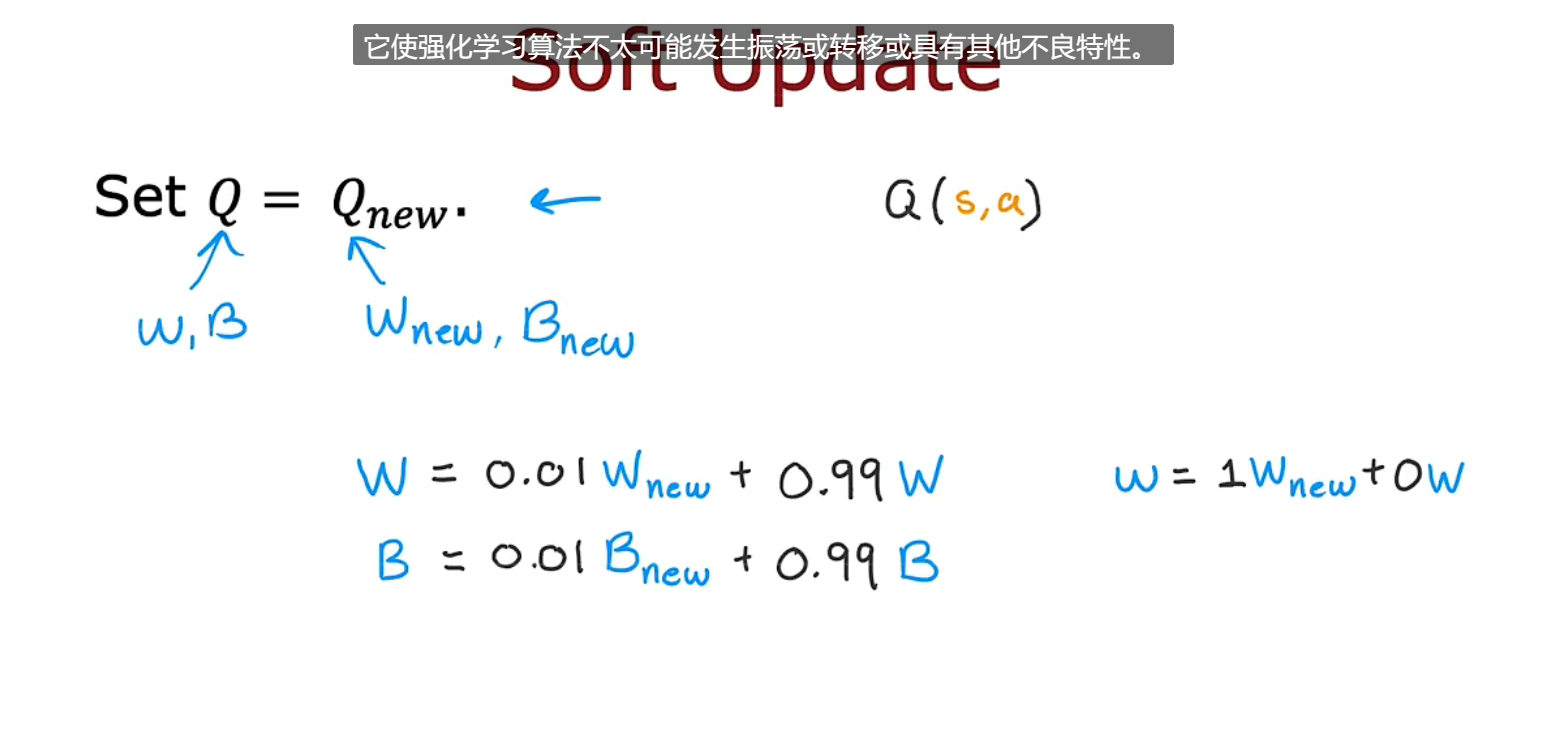 它使强化学习算法不太可能发生振荡或转移或具有其他不良特性。
Soft Update
Set Q = Qnew.
Q(s,a)
W,B
Wnew, Bnew
W = 0.01 Wnew + 0.99 W
W = 1Wnew + 0W
B = 0.01 Bnew + 0.99 B